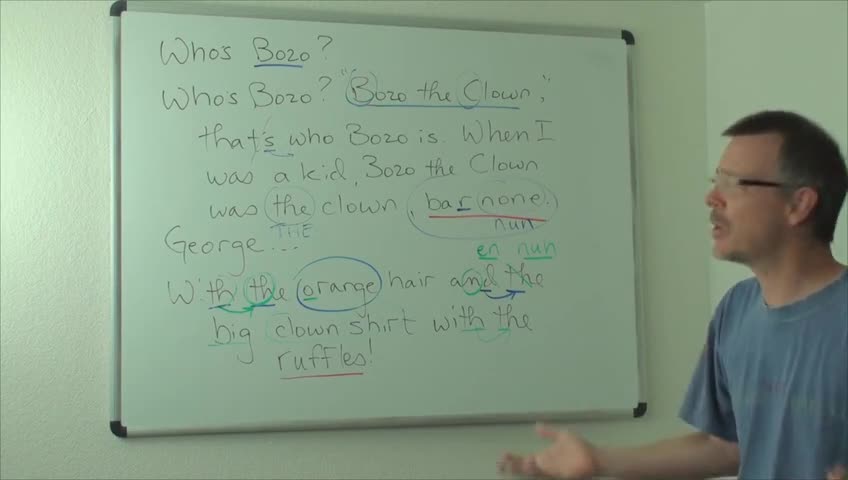 Who's Bozo?
Who's Bozo? "Bozo the Clown,"
that's who Bozo is. When I
was a kid, Bozo the Clown
was the clown, bar none.
THE nun
George...
en nuh
With the orange hair and the
big clown shirt with the
ruffles!